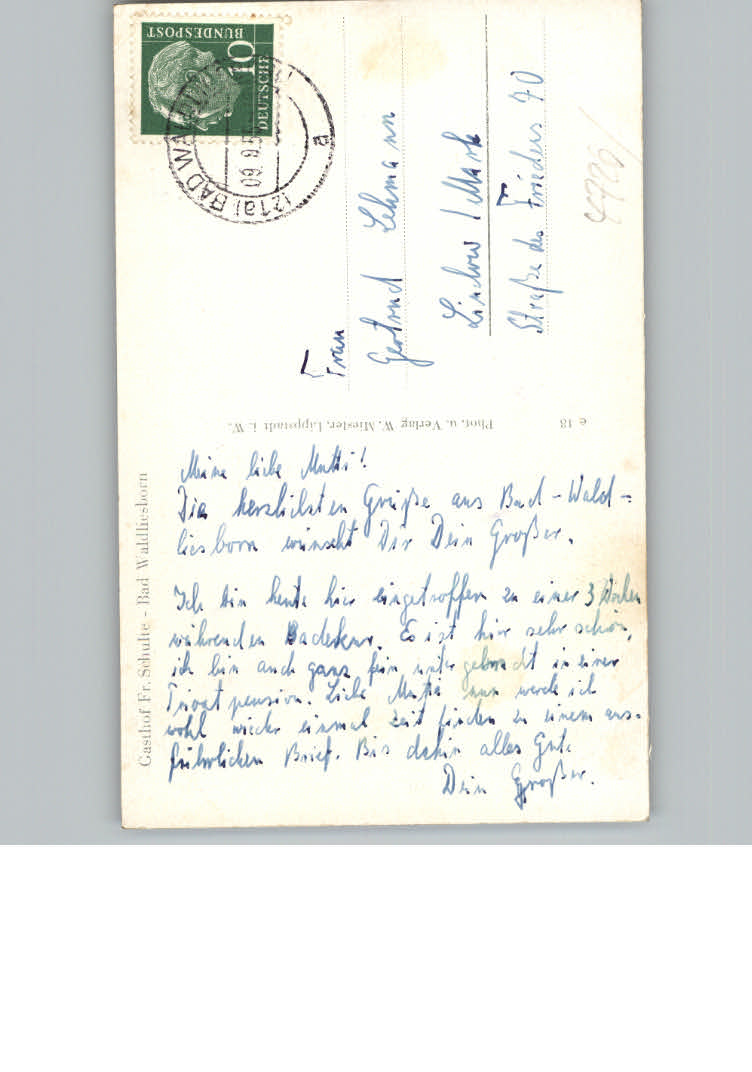 Meine liebe Mutti!
Die herzlichsten Grüße aus Bad-Wald-
liesborn wünscht Dir Dein Großer.
Ich bin heute hier eingetroffen zu einer 3 Wochen
währenden Badekur. Es ist hier sehr schön,
ich bin auch ganz fein untergebracht in einer
Privatpension. Liebe Mutti nun werde ich
wohl wieder einmal Zeit finden zu einem aus-
führlichen Brief. Bis dahin alles Gute
Dein Großer.
Gasthof Fr. Schulte - Bad Waldliesborn
Phot. u. Verlag W. Miesler, Lippstadt i. W.
e 13
Frau
Gertrud Lehmann
Lindow / Mark
Straße des Friedens 70
DEUTSCHE
BUNDESPOST
10
(21a) BAD WALDLIESBORN
09.9.5
a